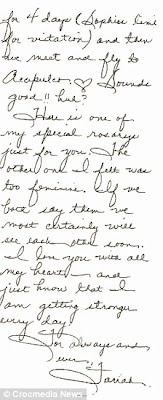 for 4 days (Sophies time
for visitation) and then
we meet and fly to
Acapulco ♡ Sounds
good!! huh?
Here is one of
my special rosarys
just for you The
other one I felt was
too feminine. If we
both say them we
most certainly will
see each other soon.
I love you with all
my heart and
just know that I
am getting stronger
every day
For always and
ever"
© Crocmedia News